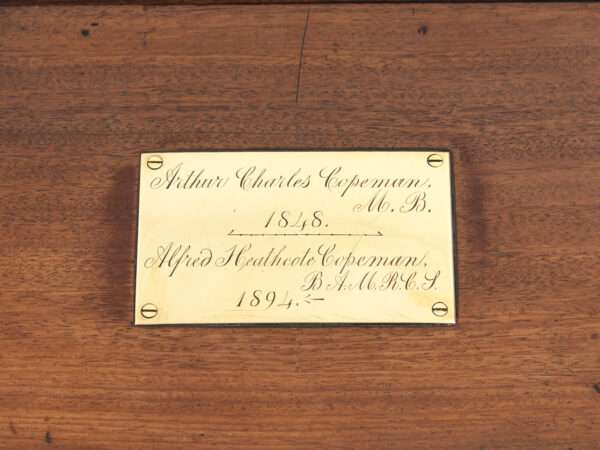 Arthur Charles Copeman,
M. B.
1848.
Alfred Heathcote Copeman,
B A. M. R. C. S.
1894.